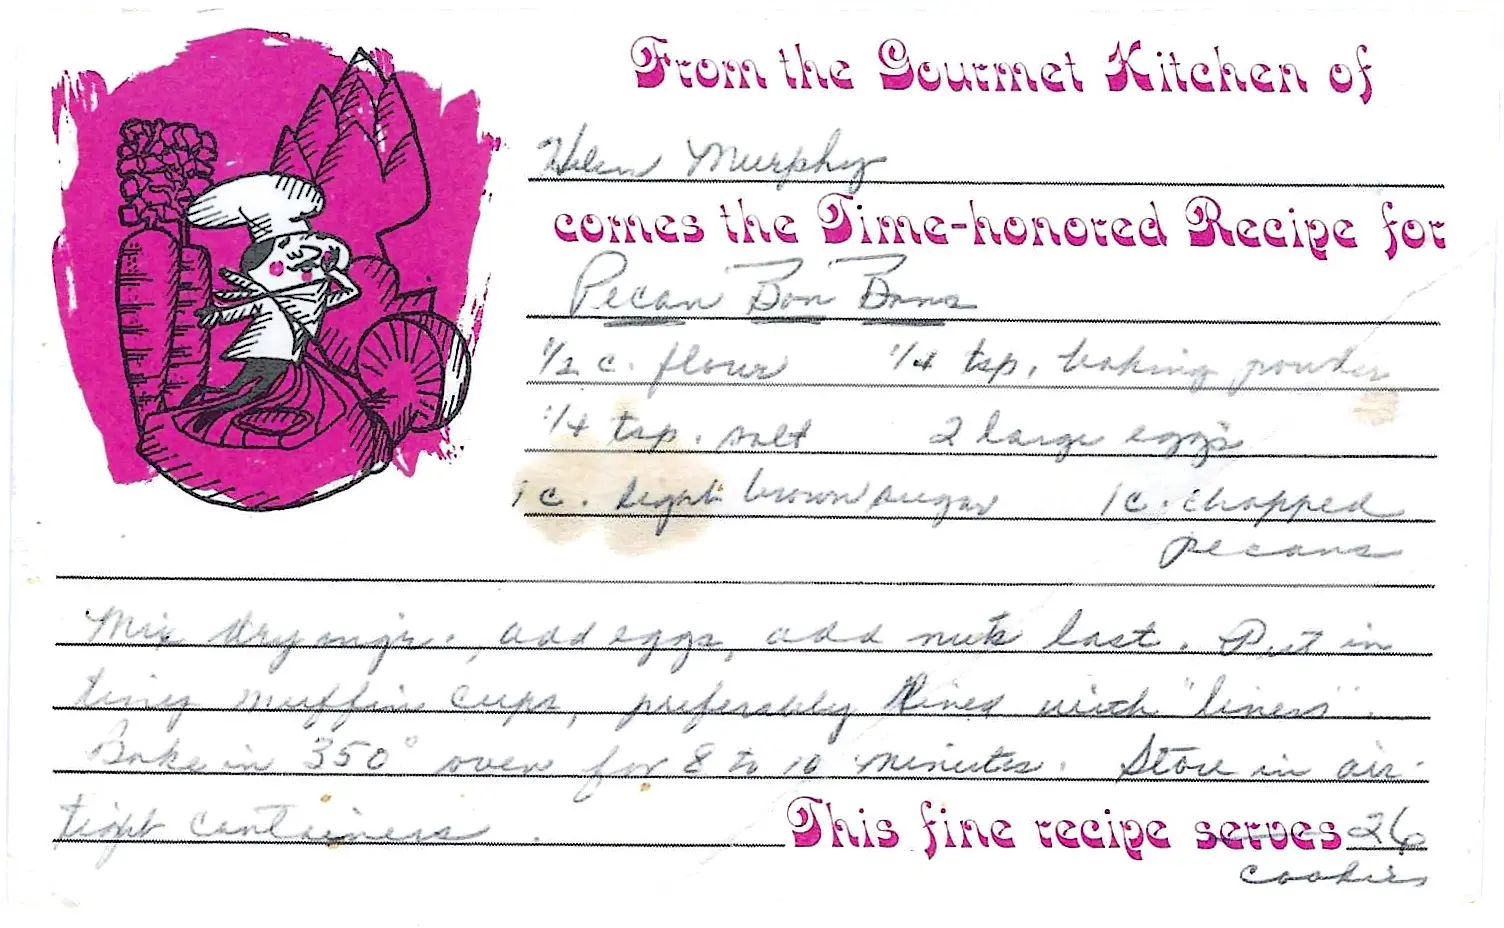 From the Gourmet Kitchen of
Helen Murphy
comes the Time-honored Recipe for
Pecan Bon Bons
1/2 c. flour 1/4 tsp. baking powder
1/4 tsp. salt 2 large eggs
1 c. light brown sugar 1 c. chopped
pecans
Mix dry ingr., add eggs, add nuts last. Put in
tiny muffin cups, preferably lined with "liners".
Bake in 350° oven for 8 to 10 minutes. Store in air-
tight containers. This fine recipe serves 26
cookies